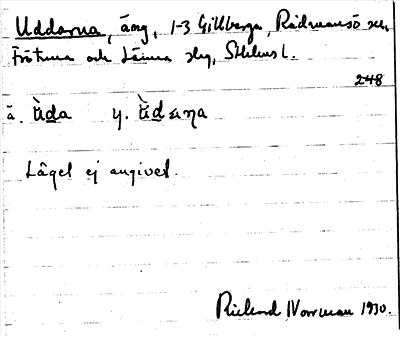 Uddarna, äng, 1-3 Gillberga, Rådmansö sn,
Frötuna och Länna slg, Sthlms l.
248
ä. ùda y. ùdaɳa
Läget ej angivet.
Rickard Norrman 1930.